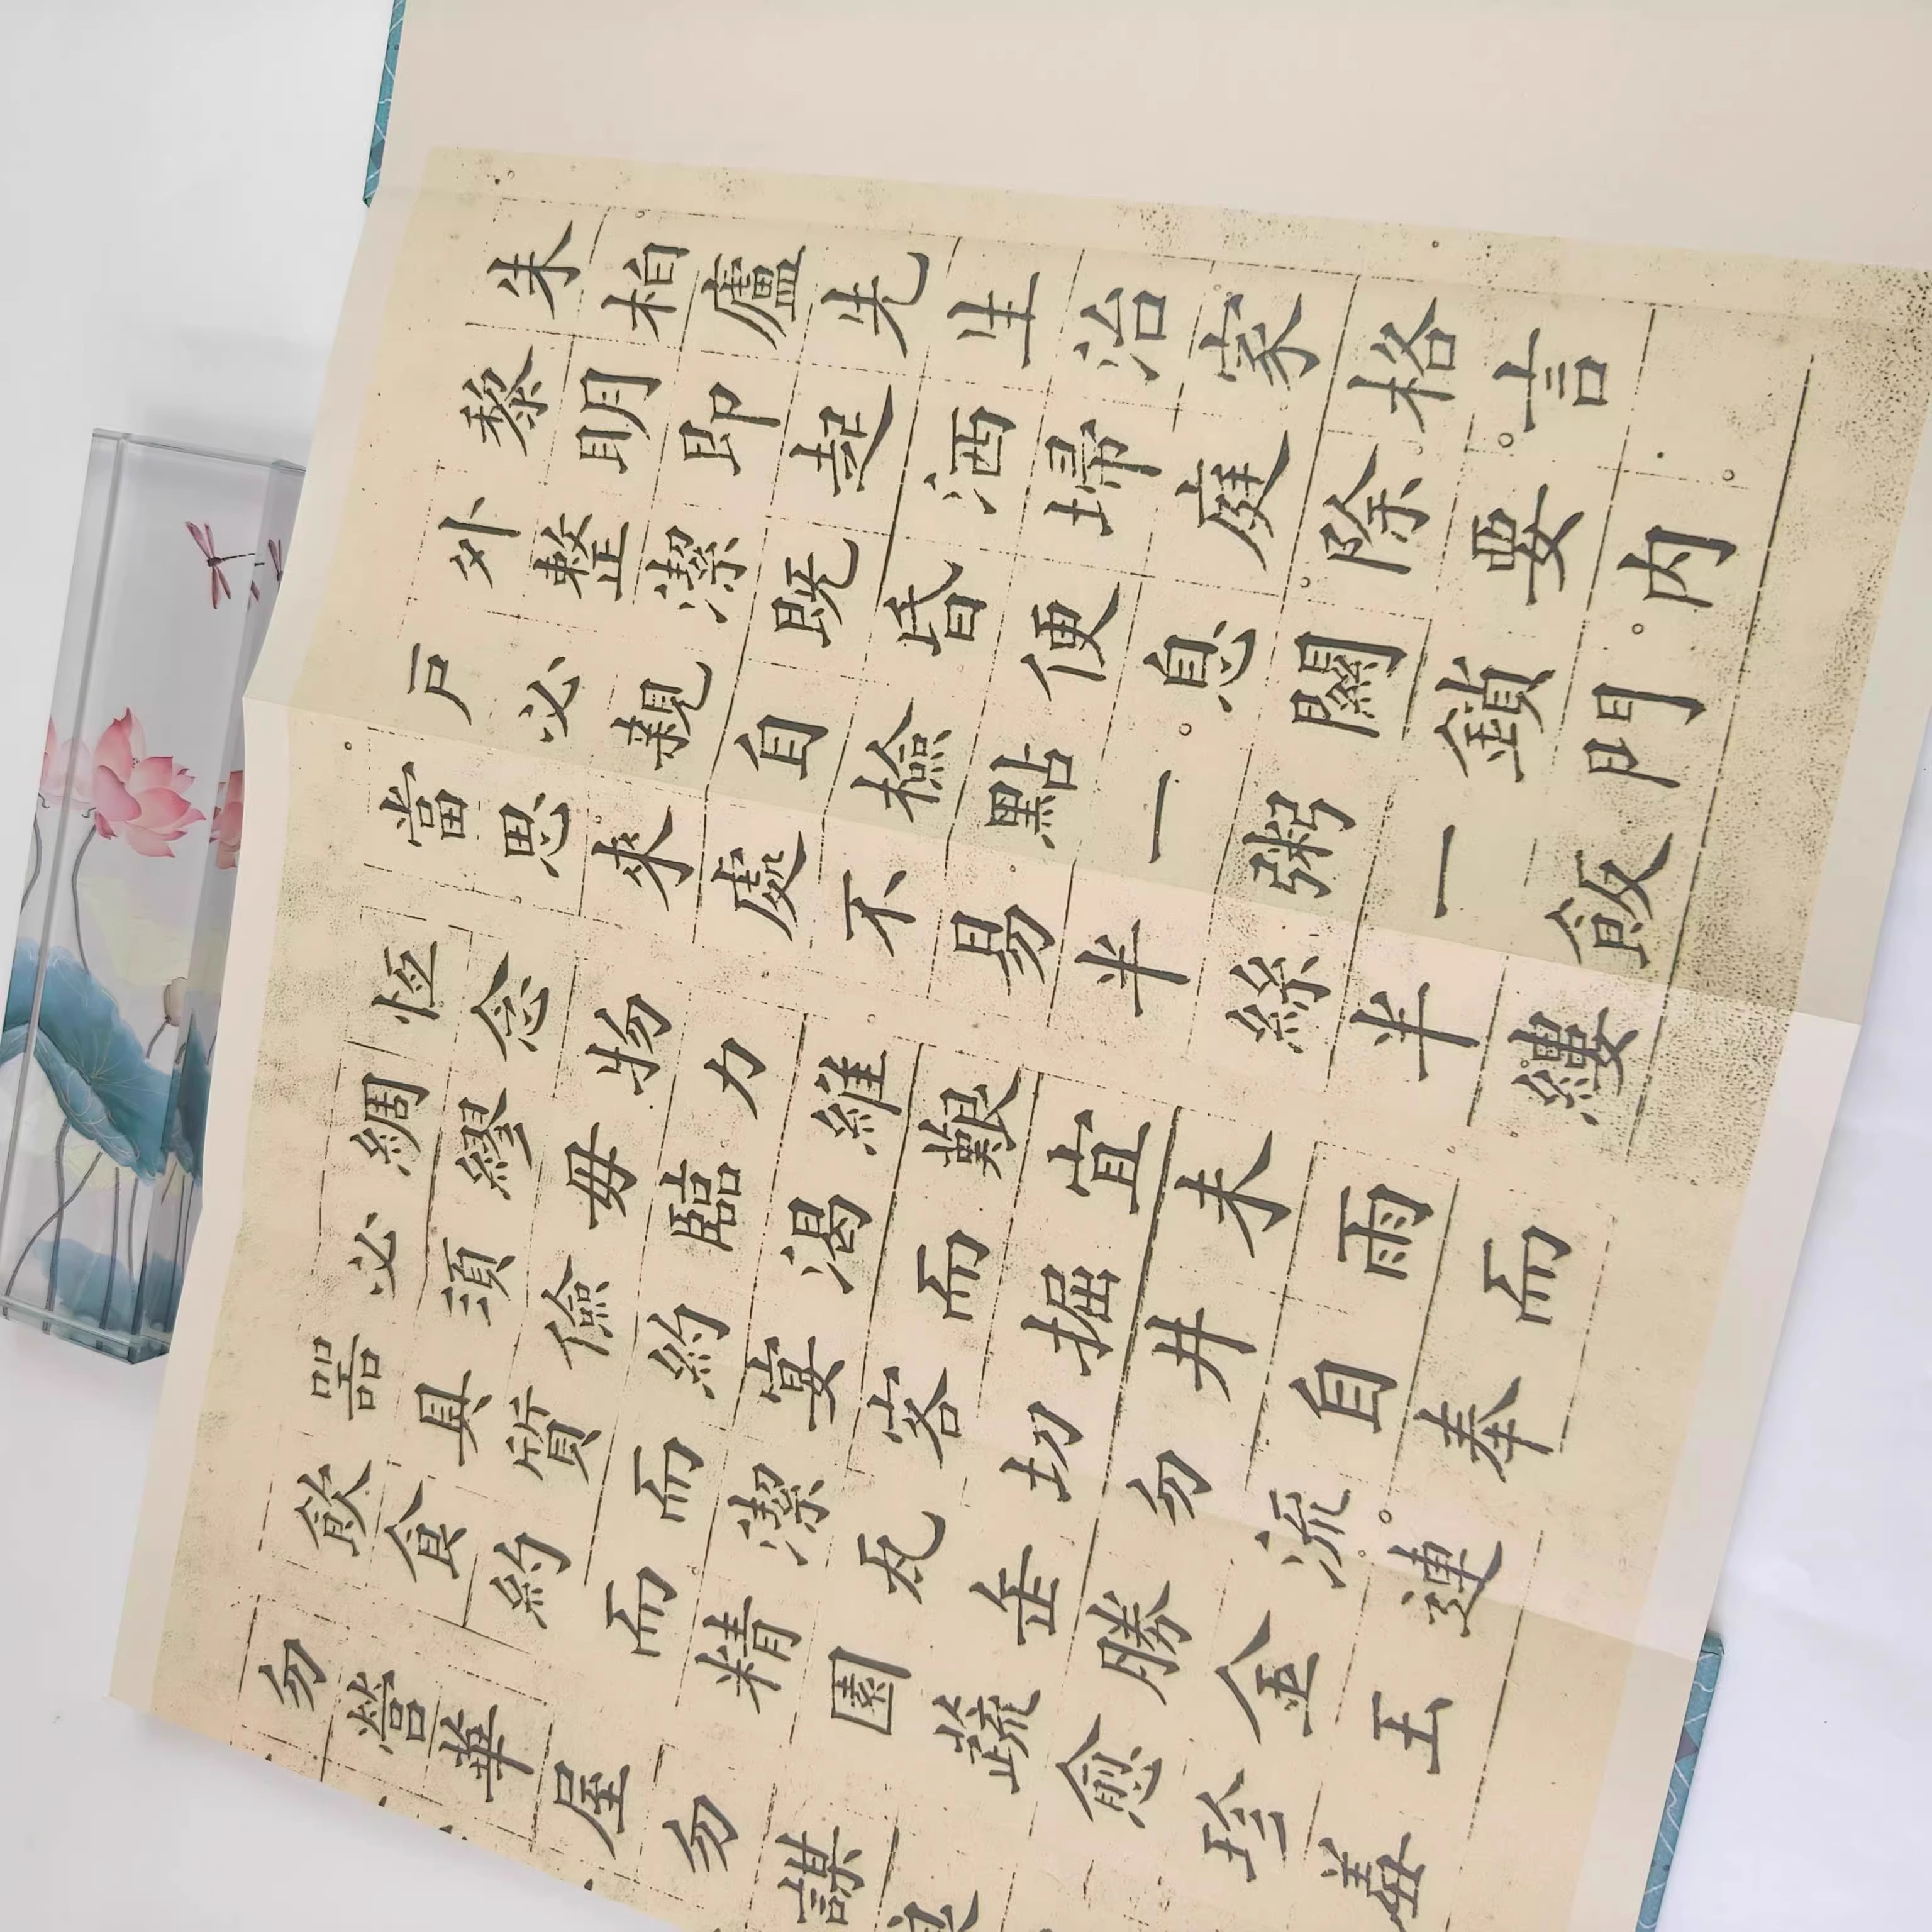 朱柏廬先生治家格言
黎明即起洒埽庭除要内
外整潔既昏便息關鎖門
戶必親自檢點一粥一飯
當思來處不易半絲半縷
恆念物力維艱宜未雨而
綢繆毋臨渴而掘井自奉
必須儉約宴客切勿流連
器具質而潔瓦缶勝金玉
飲食約而精園蔬愈珍羞
勿營華屋勿謀